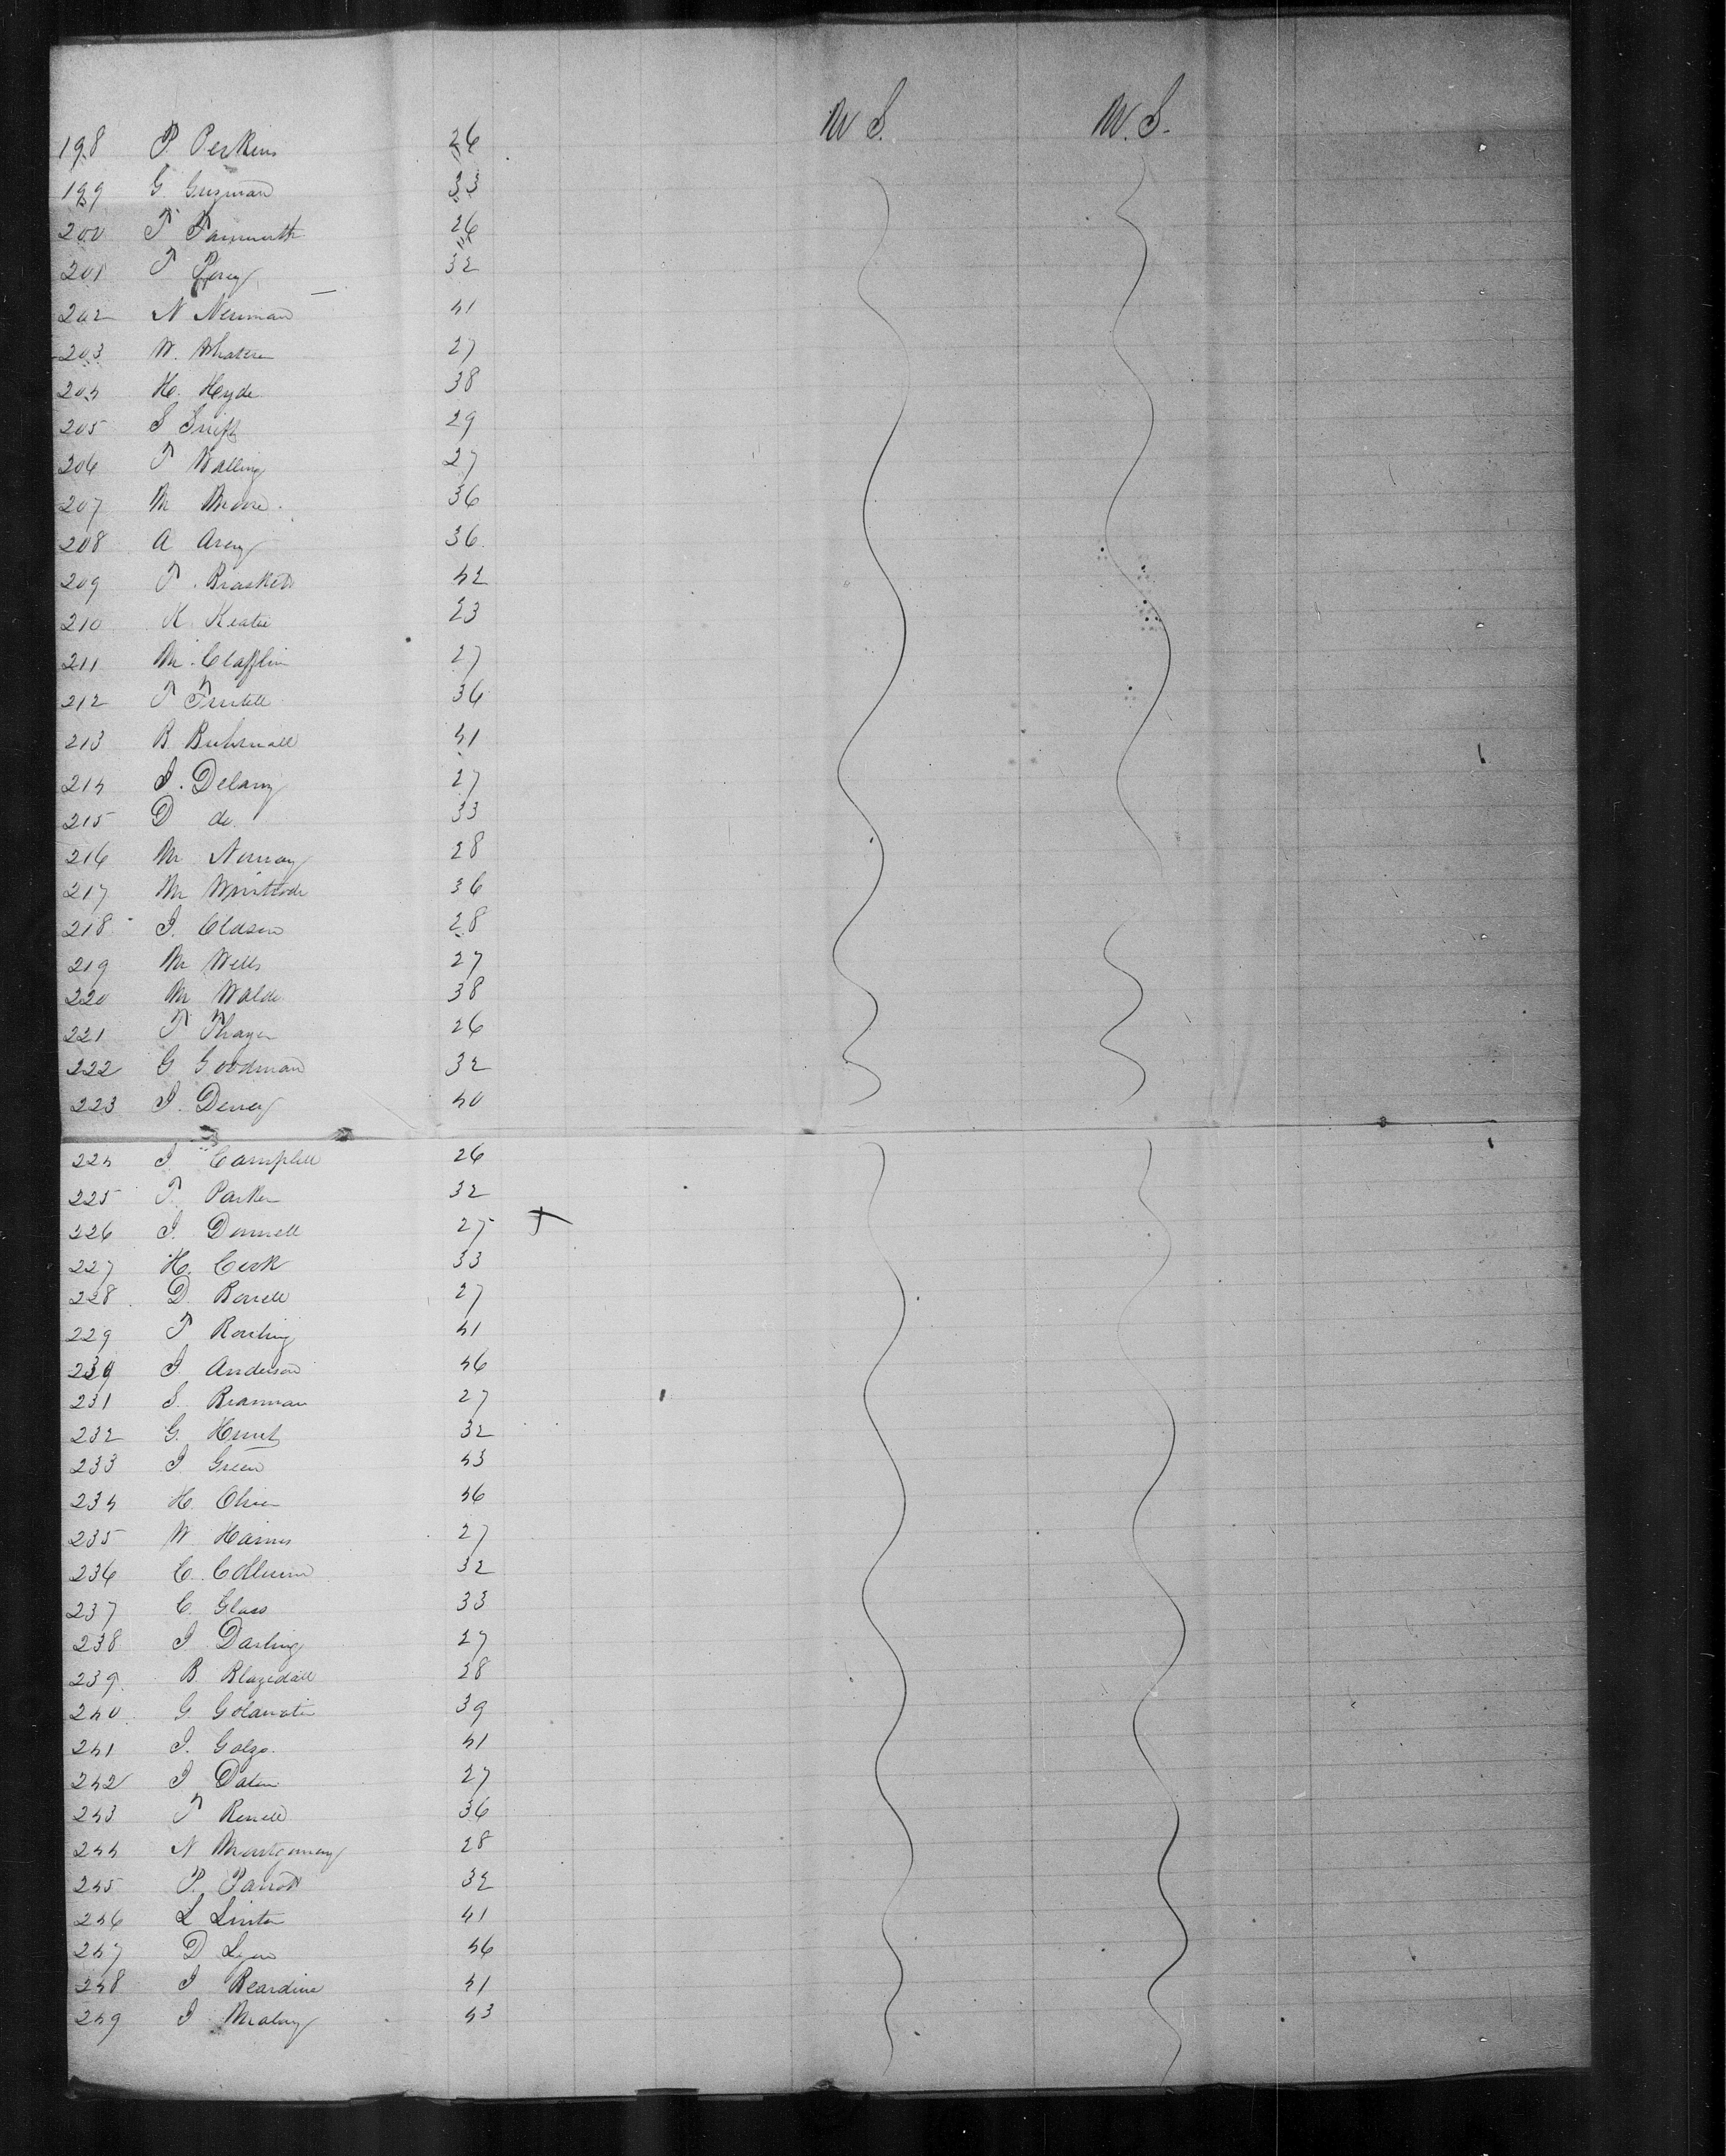 U.S. U.S.
198 P Perkins 26
199 G Guzman 33
200 T 26
201 T 32
202 N Newman 41
203 W. 27
204 H. Hyde 38
205 S Swift 29
206 T Walling 27
207 M Moore. 36
208 A Avery 36.
209 T. Brackett 42
210 K 23
211 M. Clafflin 27
212 T 36
213 B 41
214 J. Delany 27
215 D do 33
216 M 28
217 M 36
218 J. 28
219 M Wells 27
220 M Waldo 38
221 T Thayer 26
222 G Goodman 32
223 J. Dewey 40
224 J Campbell 26
225 T. Parker 32
226 J. Donnell 27
227 H. 33
228 D 27
229 T Rowling 41
230 J Anderson 46
231 S. Brannan 27
232 G. Hunt 32
233 J Green 43
234 H. 46
235 W Haines 27
236 C. 32
237 C. Glass 33
238 J Darling 27
239. B. Blazedall 28
240 G 39
241 J. 41
242 J 27
243 T 36
244 N Montgomery 28
245 P. Parrott 32
246 L Linton 41
247 D Lyon 46
248 J Beardine 41
249 J Malay 43